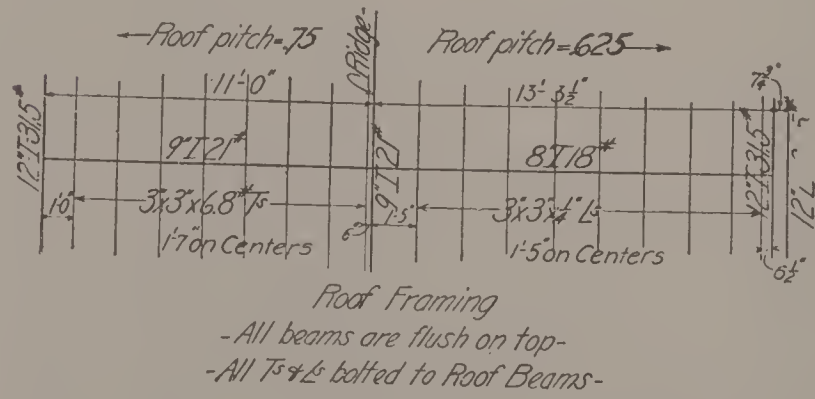 Roof pitch=.75
Ridge
Roof pitch=.625
11'-0"
13'-3½"
7¼"
12"I-31.5#
9"I21#
9"I21#
8"I18#
12"I-31.5#
12"L
1'-0"
3"x3"x6.8# Ts
6"
1'-5"
3"x3"x¼" Ls
1'-7" on Centers
1'-5" on Centers
6½"
Roof Framing
-All beams are flush on top-
-All Ts & Ls bolted to Roof Beams-